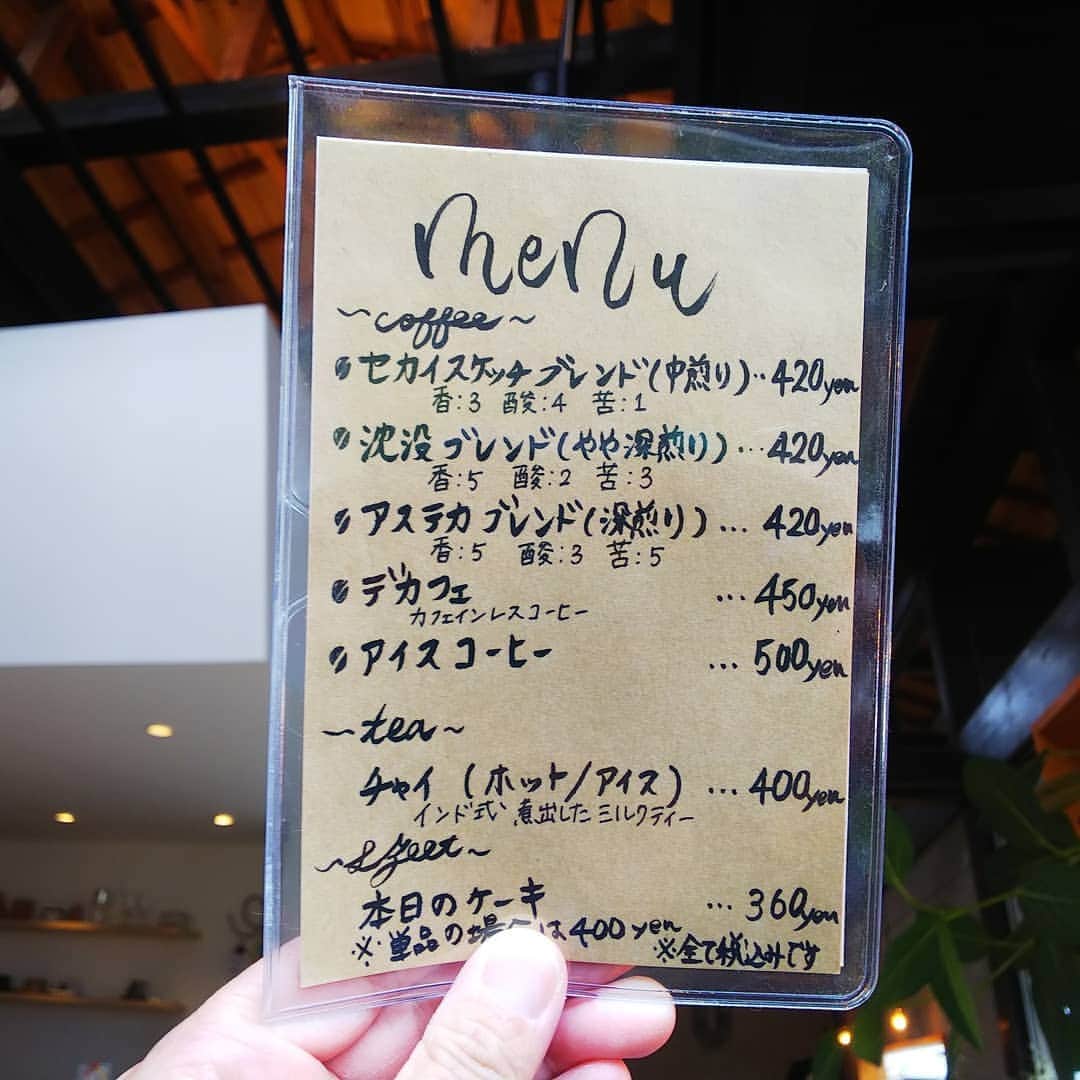 menu
~coffee~
セカイスケッチブレンド(中煎り)‥420yen
香:3 酸:4 苦:1
沈没ブレンド(やや深煎り)…420yen
香:5 酸:2 苦:3
アステカブレンド(深煎り)…420yen
香:5 酸:3 苦:5
デカフェ …450yen
カフェインレスコーヒー
アイスコーヒー …500yen
~tea~
チャイ(ホット/アイス)…400yen
インド式 煮出したミルクティー
本日のケーキ …360yen
※単品の場合は400yen ※全て税込みです